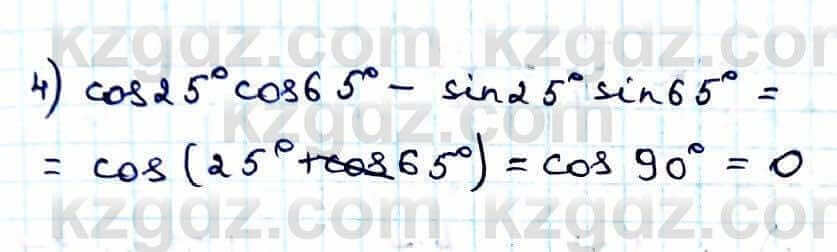 kzgdz.com kzgdz.com
4) cos25°cos65° - sin25°sin65° =
kzgdz.com
= cos(25°+cos65°) = cos 90° = 0
kzgdz.com kzgdz.com